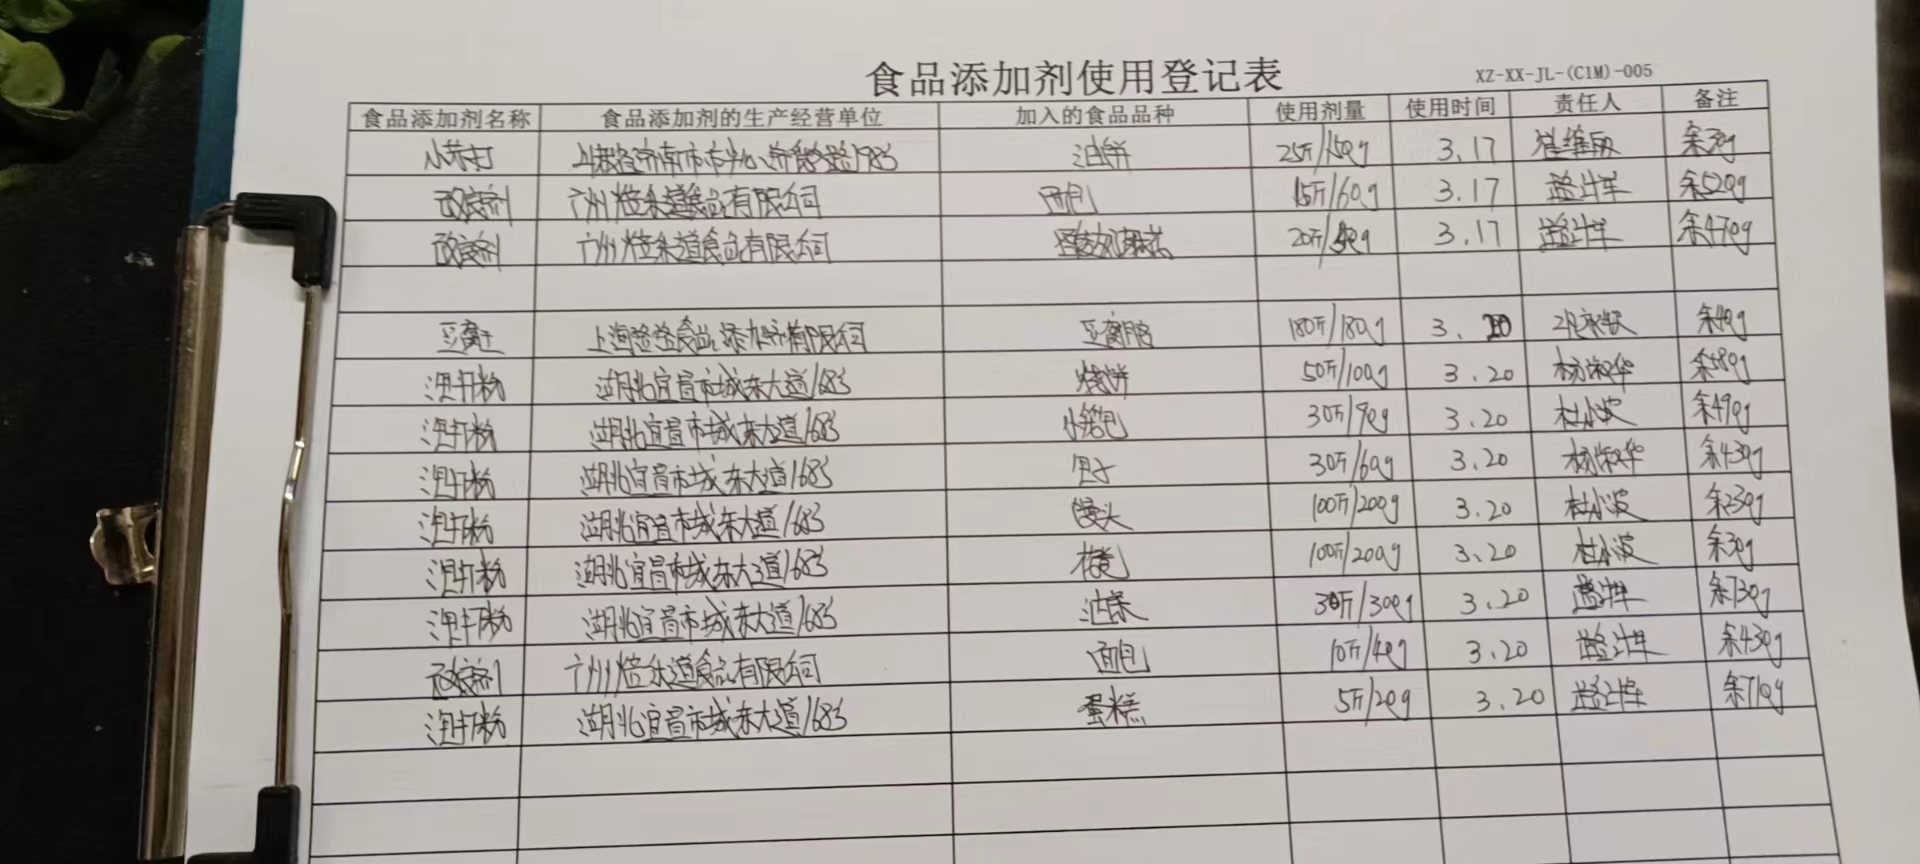 食品添加剂使用登记表
XZ-XX-JL-(C1M)-005
食品添加剂名称 食品添加剂的生产经营单位 加入的食品品种 使用剂量 使用时间 责任人 备注
小苏打 油饼 25斤/150g 3.17 崔维丽 余30g
改良剂 广州焙乐道食品有限公司 面包 15斤/60g 3.17 余520g
改良剂 广州焙乐道食品有限公司 20斤/50g 3.17 余470g
豆腐王 豆腐脑 180斤/180g 3.20 余40g
泡打粉 湖北宜昌市城东大道168号 烧饼 50斤/100g 3.20 杨淑华 余580g
泡打粉 湖北宜昌市城东大道168号 小笼包 30斤/90g 3.20 杜小波 余490g
泡打粉 湖北宜昌市城东大道168号 30斤/60g 3.20 杨淑华 余430g
泡打粉 湖北宜昌市城东大道168号 馒头 100斤/200g 3.20 杜小波 余230g
泡打粉 湖北宜昌市城东大道168号 100斤/200g 3.20 杜小波 余30g
泡打粉 湖北宜昌市城东大道168号 油条 30斤/300g 3.20 余730g
改良剂 广州焙乐道食品有限公司 面包 10斤/40g 3.20 余430g
泡打粉 湖北宜昌市城东大道168号 蛋糕 5斤/20g 3.20 余710g